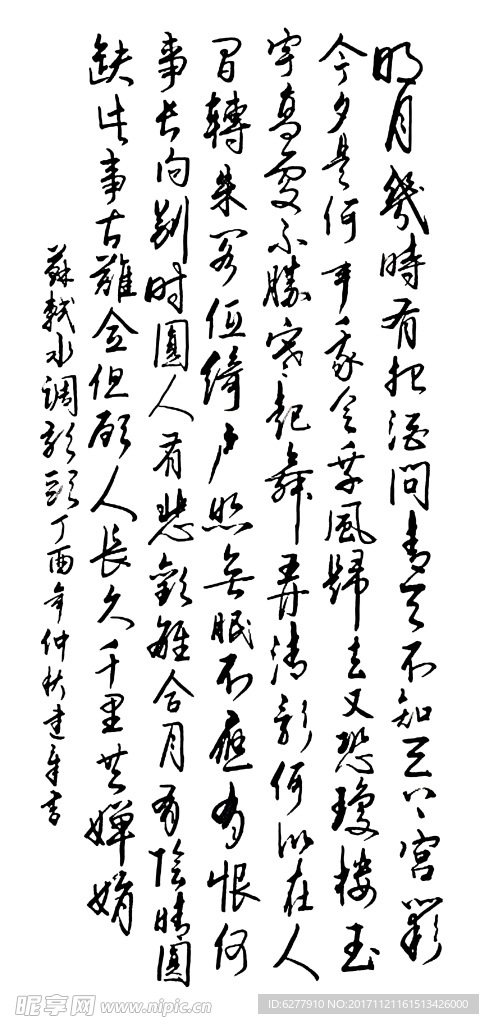 明月幾時有把酒問青天不知天上宮闕
今夕是何年我欲乘風歸去又恐瓊樓玉
宇高處不勝寒起舞弄清影何似在人
間轉朱閣低綺戶照無眠不應有恨何
事長向別时圓人有悲歡離合月有陰晴圓
缺此事古難全但願人長久千里共嬋娟
蘇軾水调歌頭丁酉年仲秋建书
昵享网 www.nipic.cn
ID:6277910 NO:20171121161513426000